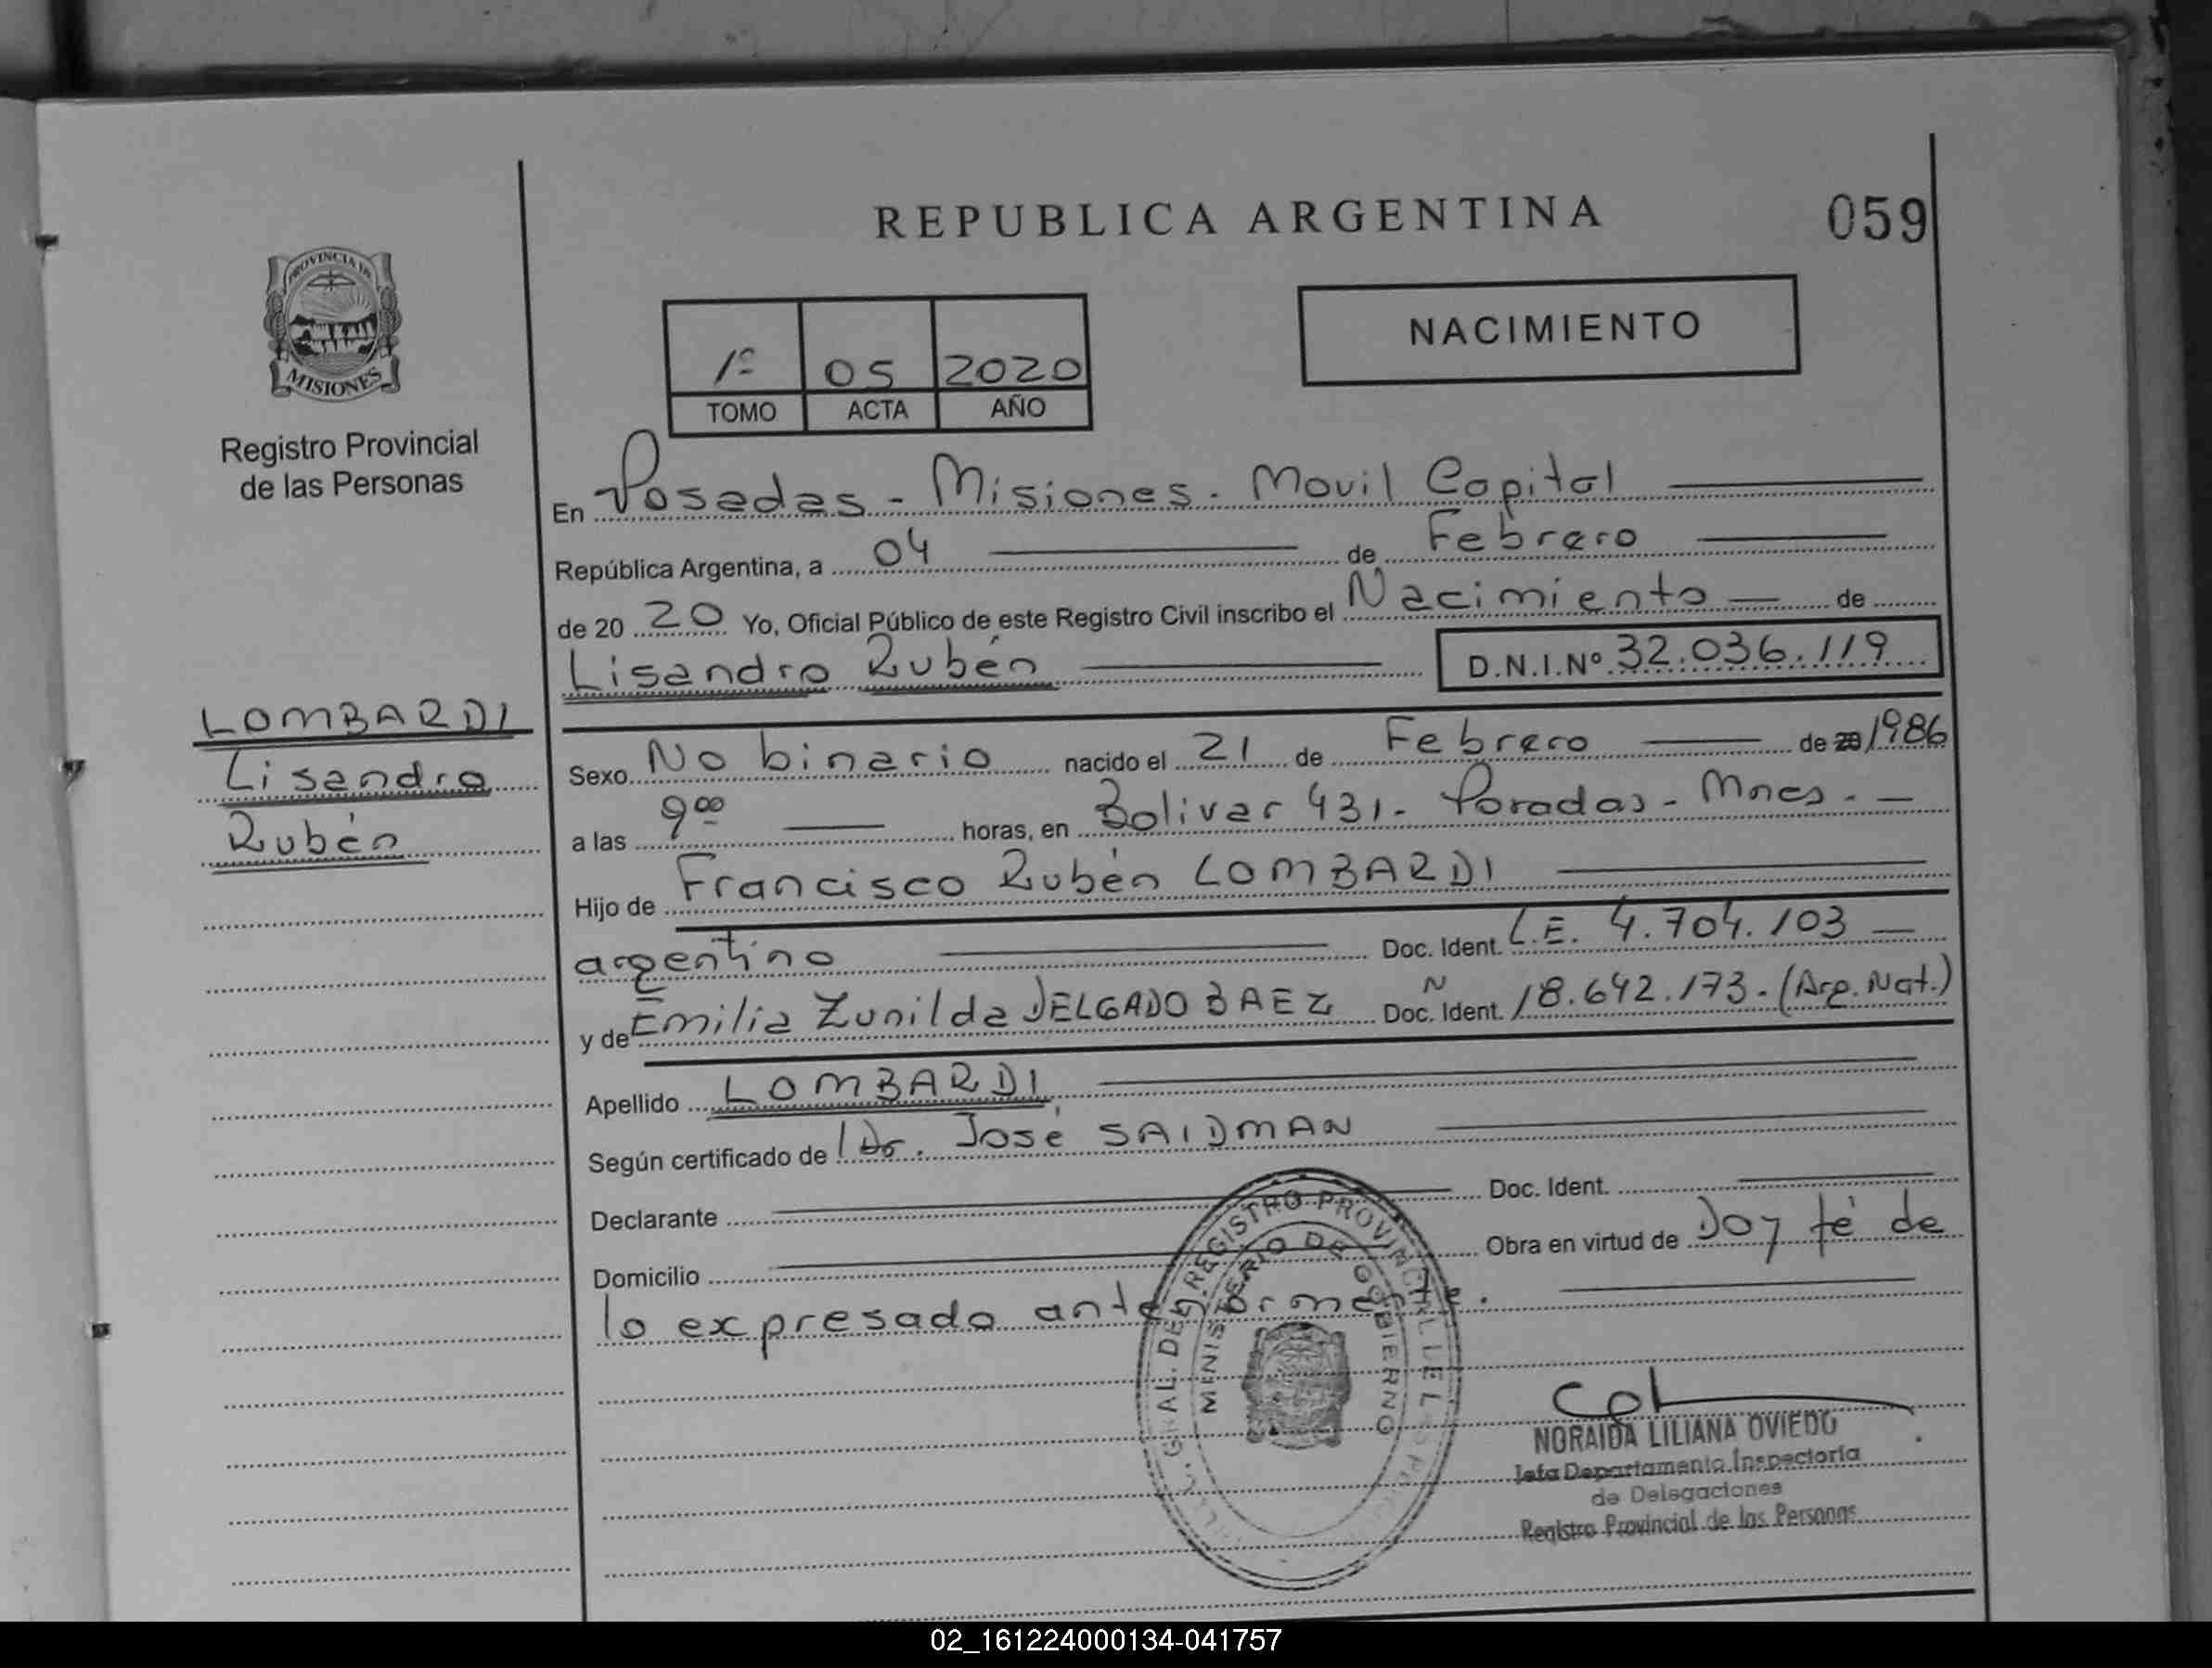 REPUBLICA ARGENTINA
059
PROVINCIA DE
MISIONES
Registro Provincial
de las Personas
1º 05 2020
TOMO ACTA AÑO
NACIMIENTO
En Posadas - Misiones - Movil Capital
República Argentina, a 04 de Febrero
de 20 20 Yo, Oficial Público de este Registro Civil inscribo el Nacimiento de
Lisandro Rubén D.N.I.Nº 32.036.119
LOMBARDI
Lisandro
Rubén
Sexo No binario nacido el 21 de Febrero de 20 1986
a las 9 00 horas, en Bolivar 431 - Posadas - Mnes. -
Hijo de Francisco Rubén LOMBARDI
argentino Doc. Ident. L.E. 4.704.103
y de Emilia Zunilda DELGADO BAEZ Doc. Ident. Nº 18.642.173 - (Arg. Nat.)
Apellido LOMBARDI
Según certificado de Dr. José SAIDMAN
Declarante Doc. Ident.
Domicilio Obra en virtud de Doy fé de
lo expresado anteriormente.
GRAL. DEL REGISTRO PROVINCIAL DE L
MINISTERIO DE GOBIERNO
NORAIDA LILIANA OVIEDO
Jefa Departamento Inspectoria
de Delegaciones
Registro Provincial de las Personas
02_161224000134-041757